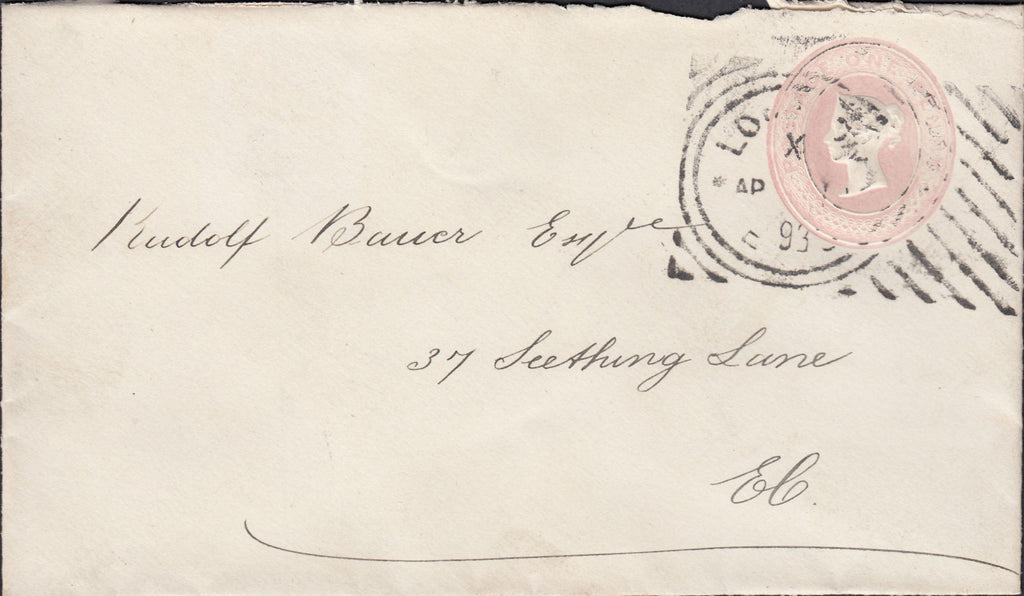 ONE PENNY
LO
X
* AP
93
Rudolf Bauer Esqre
37 Seething Lane
EC.